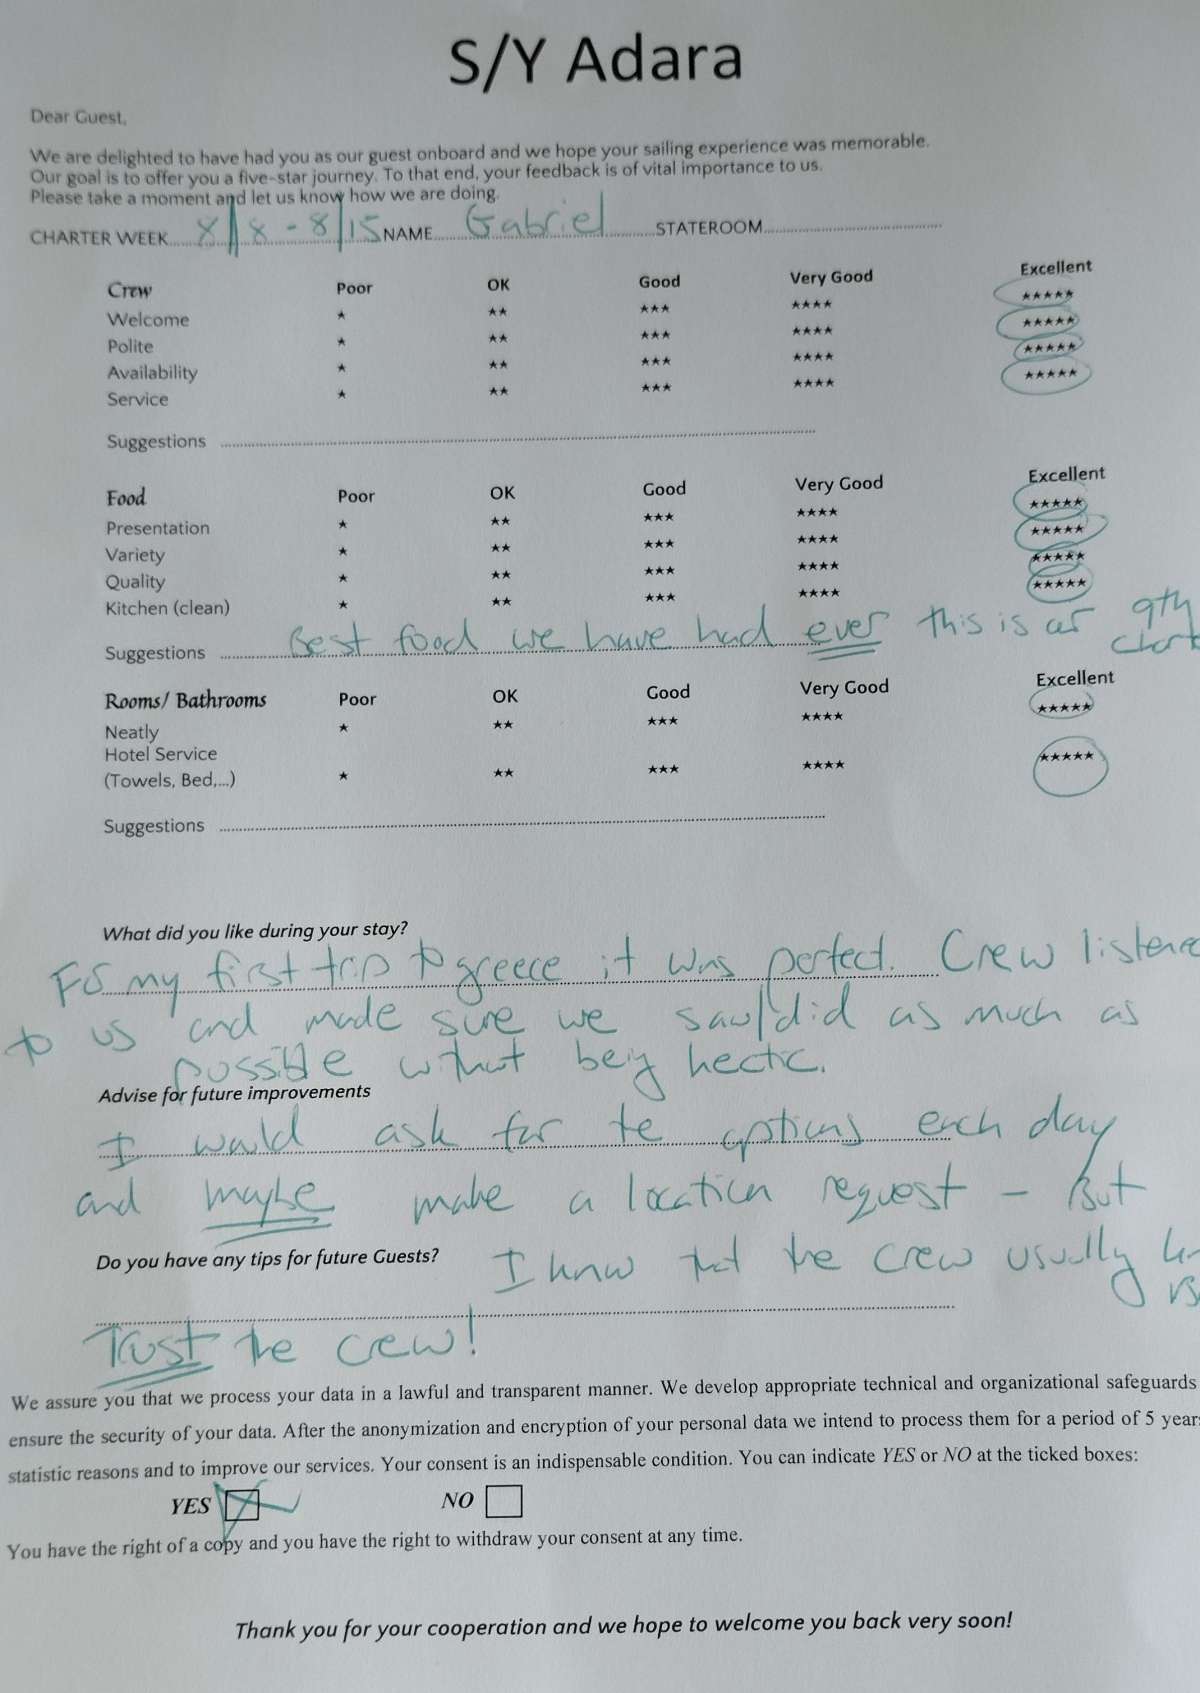 S/Y Adara
Dear Guest,
We are delighted to have had you as our guest onboard and we hope your sailing experience was memorable.
Our goal is to offer you a five-star journey. To that end, your feedback is of vital importance to us.
Please take a moment and let us know how we are doing.
CHARTER WEEK 8/8 - 8/15 NAME Gabriel STATEROOM
Crew Poor OK Good Very Good Excellent
Welcome ★ ★★ ★★★ ★★★★ ★★★★★
Polite ★ ★★ ★★★ ★★★★ ★★★★★
Availability ★ ★★ ★★★ ★★★★ ★★★★★
Service ★ ★★ ★★★ ★★★★ ★★★★★
Suggestions
Food Poor OK Good Very Good Excellent
Presentation ★ ★★ ★★★ ★★★★ ★★★★★
Variety ★ ★★ ★★★ ★★★★ ★★★★★
Quality ★ ★★ ★★★ ★★★★ ★★★★★
Kitchen (clean) ★ ★★ ★★★ ★★★★ ★★★★★
Suggestions Best food we have had ever this is our 9th
Rooms/ Bathrooms Poor OK Good Very Good Excellent
Neatly ★ ★★ ★★★ ★★★★ ★★★★★
Hotel Service
(Towels, Bed,...) ★ ★★ ★★★ ★★★★ ★★★★★
Suggestions
What did you like during your stay?
For my first trip to greece it was perfect. Crew listened
to us and made sure we saw/did as much as
possible without being hectic.
Advise for future improvements
I would ask for the options each day
and maybe make a location request - But
Do you have any tips for future Guests? I know that the crew usually
Trust the crew!
We assure you that we process your data in a lawful and transparent manner. We develop appropriate technical and organizational safeguards
ensure the security of your data. After the anonymization and encryption of your personal data we intend to process them for a period of 5 years
statistic reasons and to improve our services. Your consent is an indispensable condition. You can indicate YES or NO at the ticked boxes:
YES NO
You have the right of a copy and you have the right to withdraw your consent at any time.
Thank you for your cooperation and we hope to welcome you back very soon!